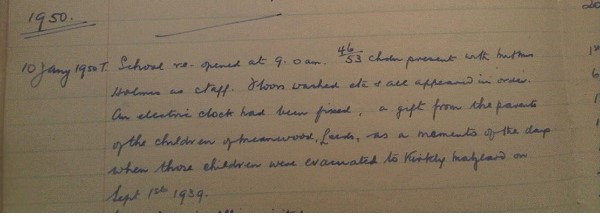 1950.
10 Jany 1950 T. School re-opened at 9.0 am. 46/53 chdn present with
Holmes as staff. Floors washed etc & all appeared in order.
An electric clock had been fixed, a gift from the parents
of the children of Meanwood, Leeds, as a memento of the days
when those children were evacuated to Kirkby Malzeard on
Sept 1st 1939.